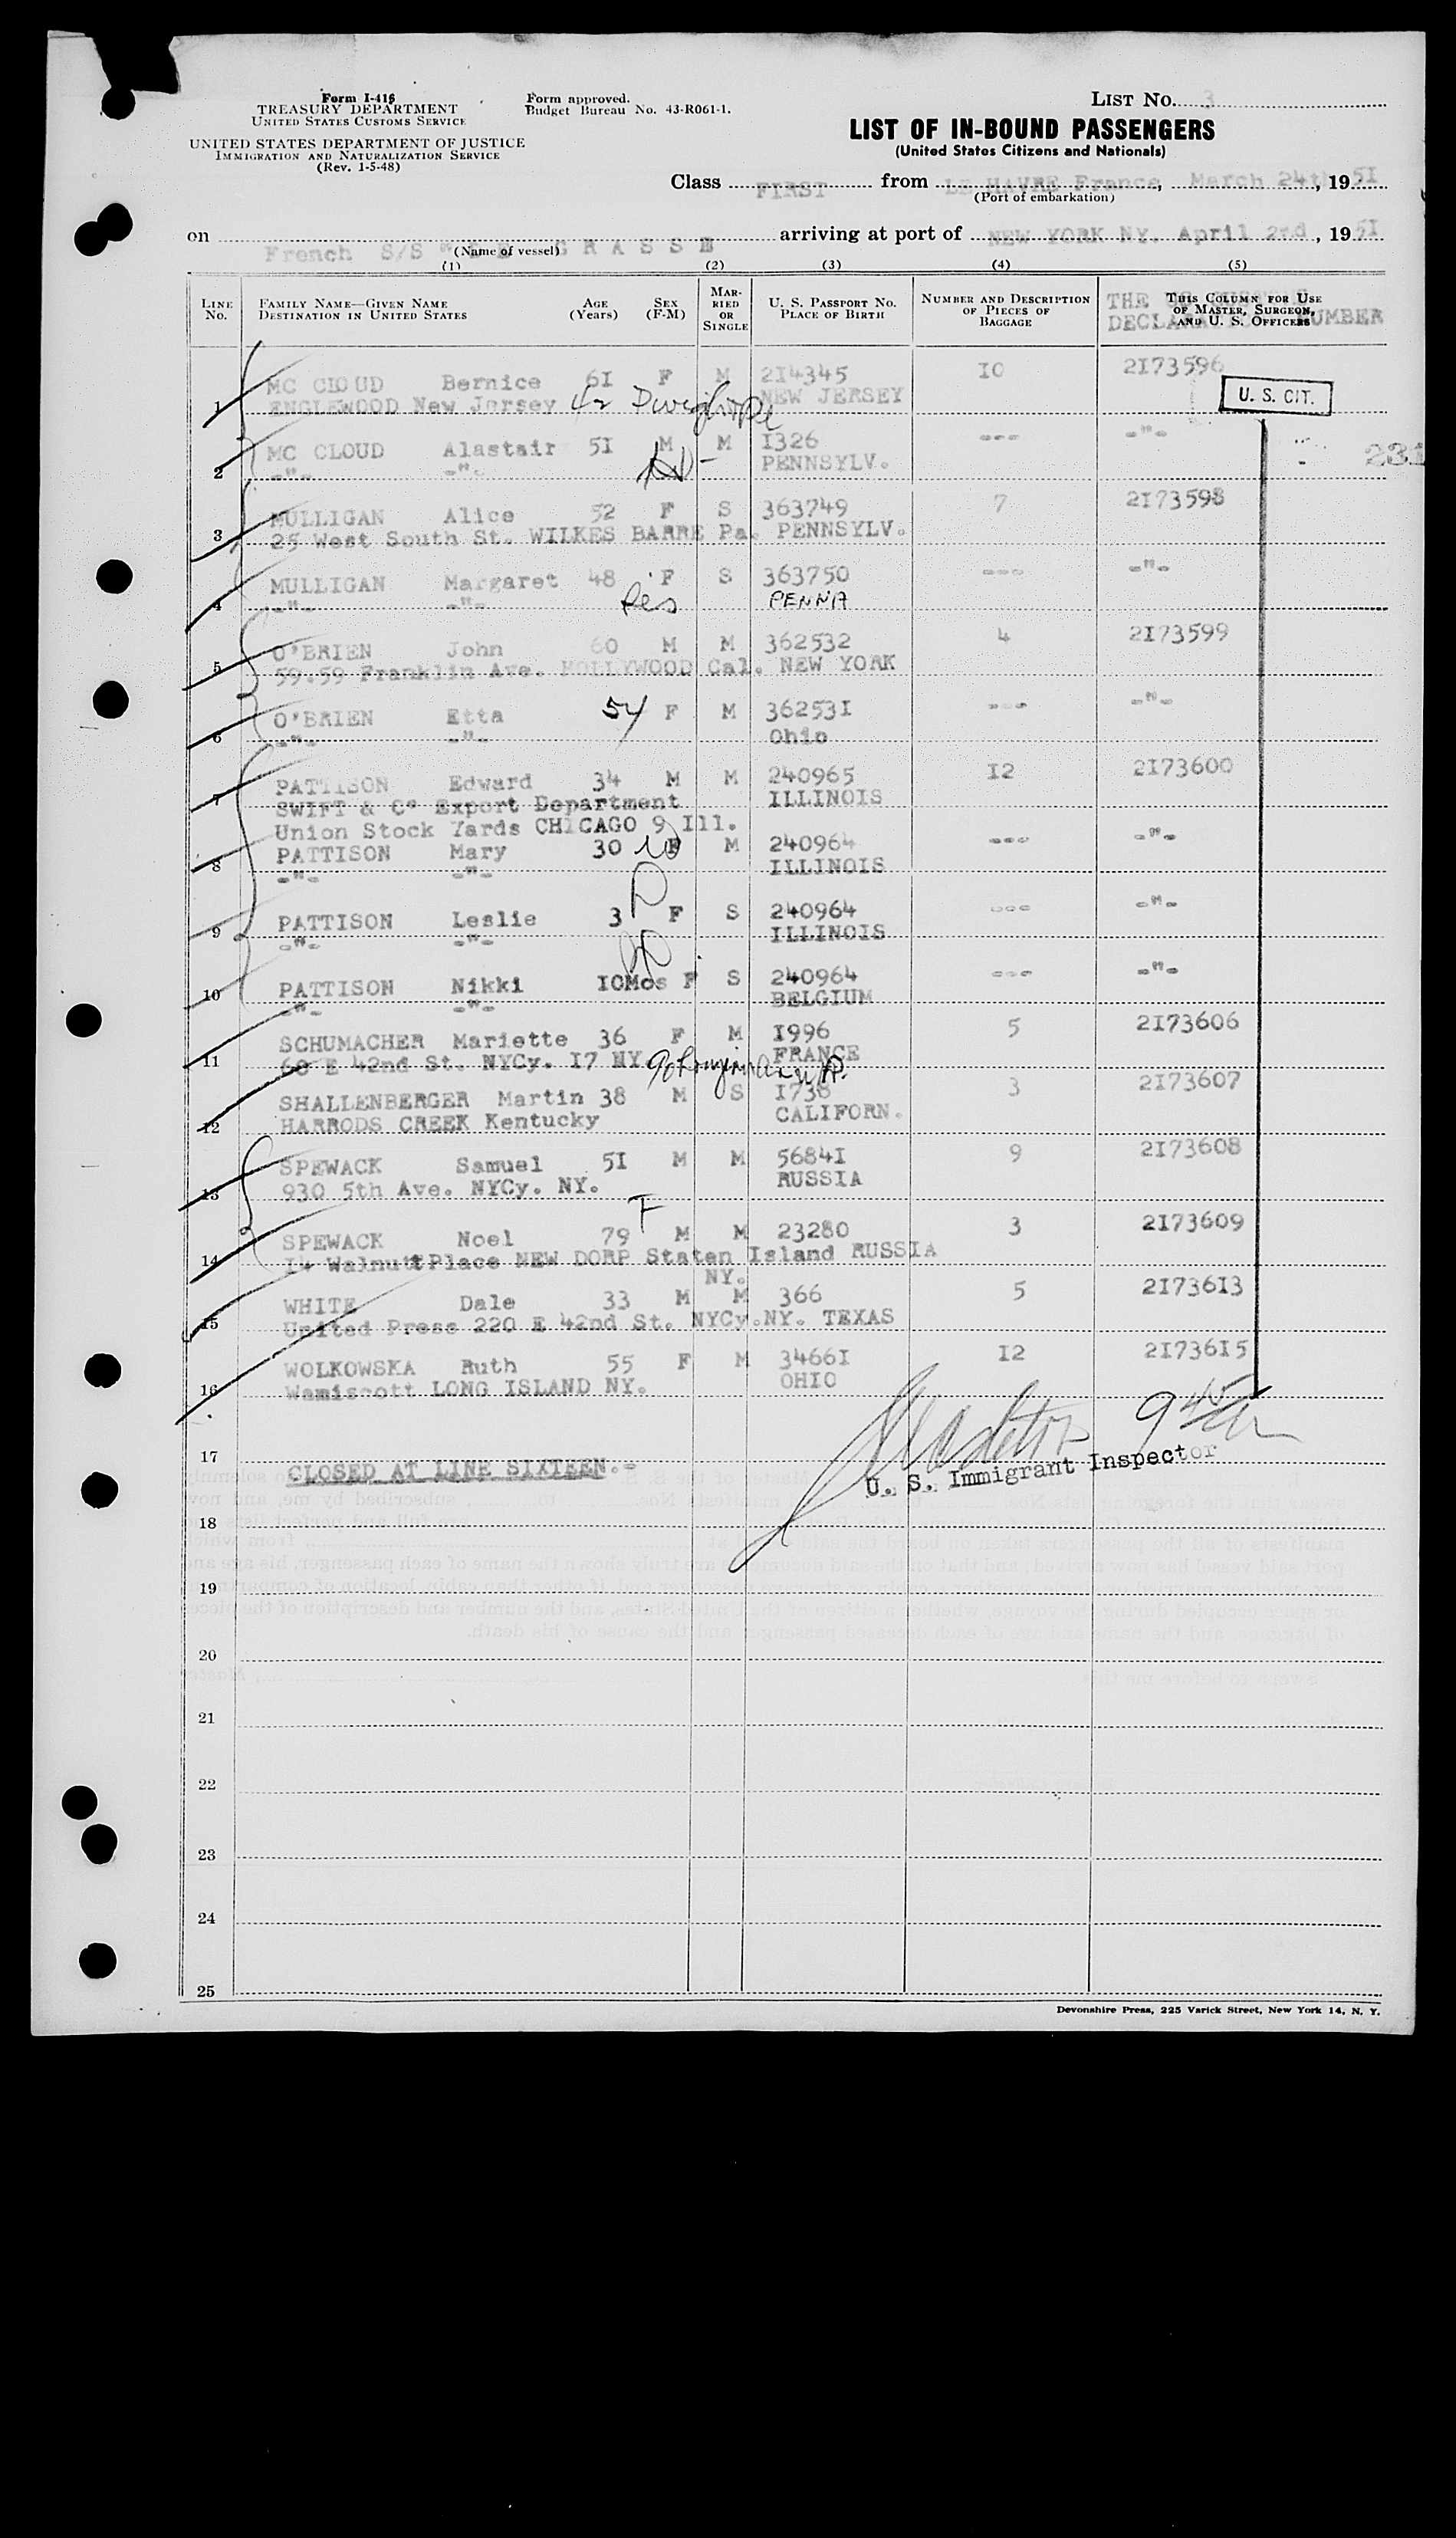 Form I-416
TREASURY DEPARTMENT
UNITED STATES CUSTOMS SERVICE
UNITED STATES DEPARTMENT OF JUSTICE
IMMIGRATION AND NATURALIZATION SERVICE
(Rev. 1-5-48)
Form approved.
Budget Bureau No. 43-R061-1.
LIST NO. 3
LIST OF IN-BOUND PASSENGERS
(United States Citizens and Nationals)
Class FIRST from LE HAVRE France, March 24th, 1951
(Port of embarkation)
on French S/S "DE GRASSE arriving at port of NEW YORK NY. April 2nd, 1951
(Name of vessel)
(1) (2) (3) (4) (5)
LINE NO. FAMILY NAME—GIVEN NAME DESTINATION IN UNITED STATES AGE (Years) SEX (F-M) MARRIED OR SINGLE U. S. PASSPORT NO. PLACE OF BIRTH NUMBER AND DESCRIPTION OF PIECES OF BAGGAGE THIS COLUMN FOR USE OF MASTER, SURGEON, AND U. S. OFFICERS
THE US CUSTOMS
DECLARATION NUMBER
1 MC CLOUD Bernice 61 F M 214345 10 2173596
ENGLEWOOD New Jersey NEW JERSEY
U. S. CIT.
2 MC CLOUD Alastair 51 M M 1326 --- -"-
-"- -"- PENNSYLV.
231
3 MULLIGAN Alice 52 F S 363749 7 2173598
25 West South St. WILKES BARRE Pa. PENNSYLV.
4 MULLIGAN Margaret 48 F S 363750 --- -"-
-"- -"- PENNA
5 O'BRIEN John 60 M M 362532 4 2173599
59.59 Franklin Ave. HOLLYWOOD Cal. NEW YORK
6 O'BRIEN Etta 54 F M 362531 --- -"-
-"- -"- Ohio
7 PATTISON Edward 34 M M 240965 12 2173600
SWIFT & C° Export Department ILLINOIS
Union Stock Yards CHICAGO 9 Ill.
8 PATTISON Mary 30 F M 240964 --- -"-
-"- -"- ILLINOIS
9 PATTISON Leslie 3 F S 240964 --- -"-
-"- -"- ILLINOIS
10 PATTISON Nikki 10Mos F S 240964 --- -"-
-"- -"- BELGIUM
11 SCHUMACHER Mariette 36 F M 1996 5 2173606
60 E 42nd St. NYCy. 17 NY. FRANCE
12 SHALLENBERGER Martin 38 M S 1738 3 2173607
HARRODS CREEK Kentucky CALIFORN.
13 SPEWACK Samuel 51 M M 56841 9 2173608
930 5th Ave. NYCy. NY. RUSSIA
F
14 SPEWACK Noel 79 M M 23280 3 2173609
14 Walnutt Place NEW DORP Staten Island RUSSIA
NY.
15 WHITE Dale 33 M M 366 5 2173613
United Press 220 E 42nd St. NYCy.NY. TEXAS
16 WOLKOWSKA Ruth 55 F M 34661 12 2173615
Wamiscott LONG ISLAND NY. OHIO
U. S. Immigrant Inspector
17 CLOSED AT LINE SIXTEEN.-
18
19
20
21
22
23
24
25
Devonshire Press, 225 Varick Street, New York 14, N. Y.